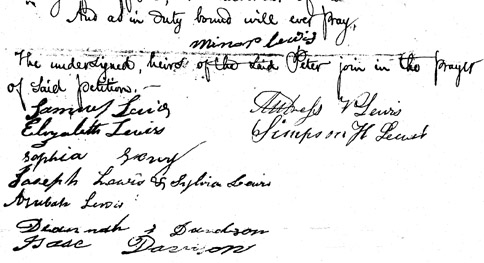 And as in duty bound will ever pray,
Minor Lewis
The undersigned, heirs of the said Peter join in the prayer
of said petition,—
Samuel Lewis
Elizabeth Lewis
Sophia
Joseph Lewis & Sylvia Lewis
Lewis
Davidson
Isaac Davison
V Lewis
Simpson H Lewis